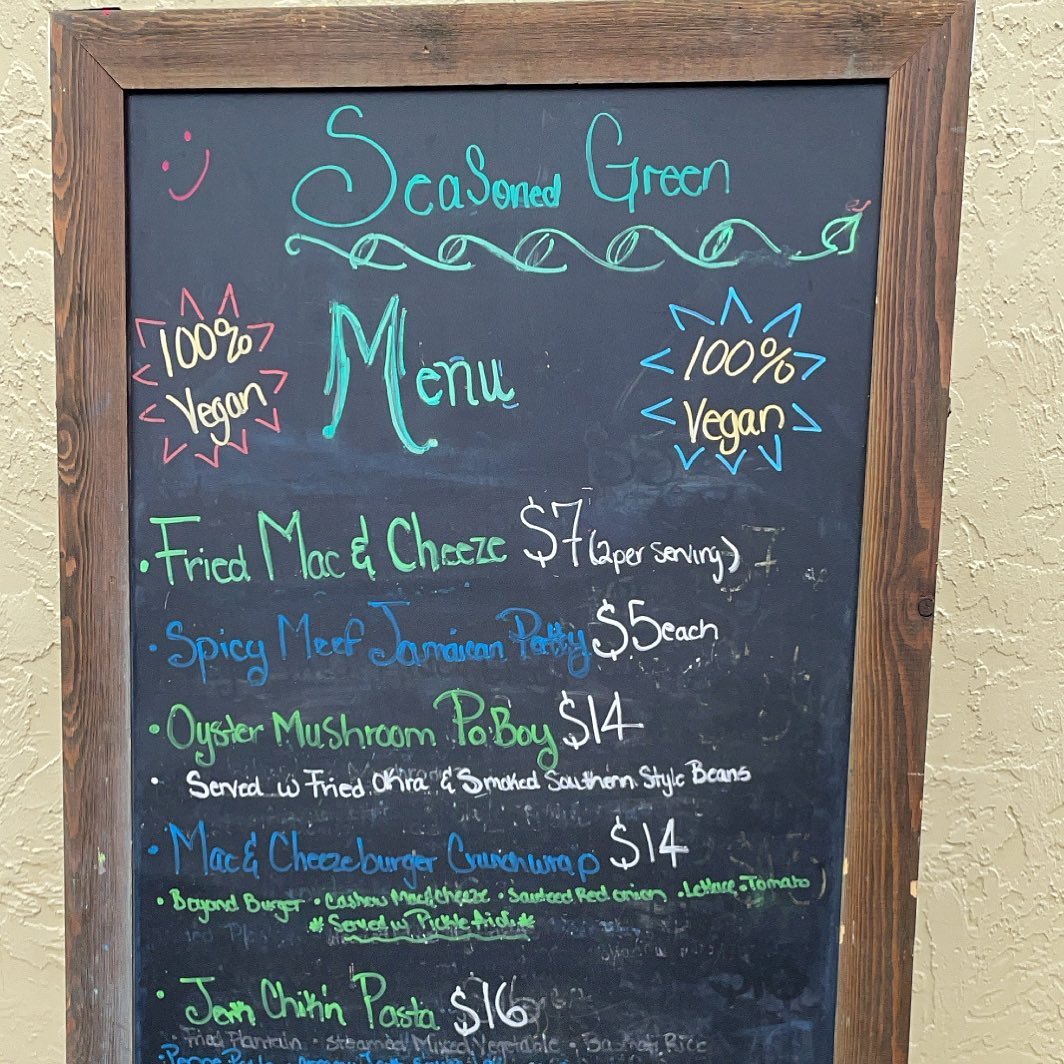 Seasoned Green
100%
Vegan
Menu
100%
Vegan
• Fried Mac & Cheeze $7 (2 per serving)
• Spicy Meef Jamaican Patty $5 each
• Oyster Mushroom Po Boy $14
• Served w Fried Okra & Smoked Southern Style Beans
• Mac & Cheezeburger Crunchwrap $14
• Beyond Burger • Cashew Mac & Cheeze • Sauteed Red onion • Lettuce • Tomato
* Served w Pickle *
• Jerk Chik'n Pasta $16
• Fried Plantain • Steamed Mixed Vegetable • Basmati Rice